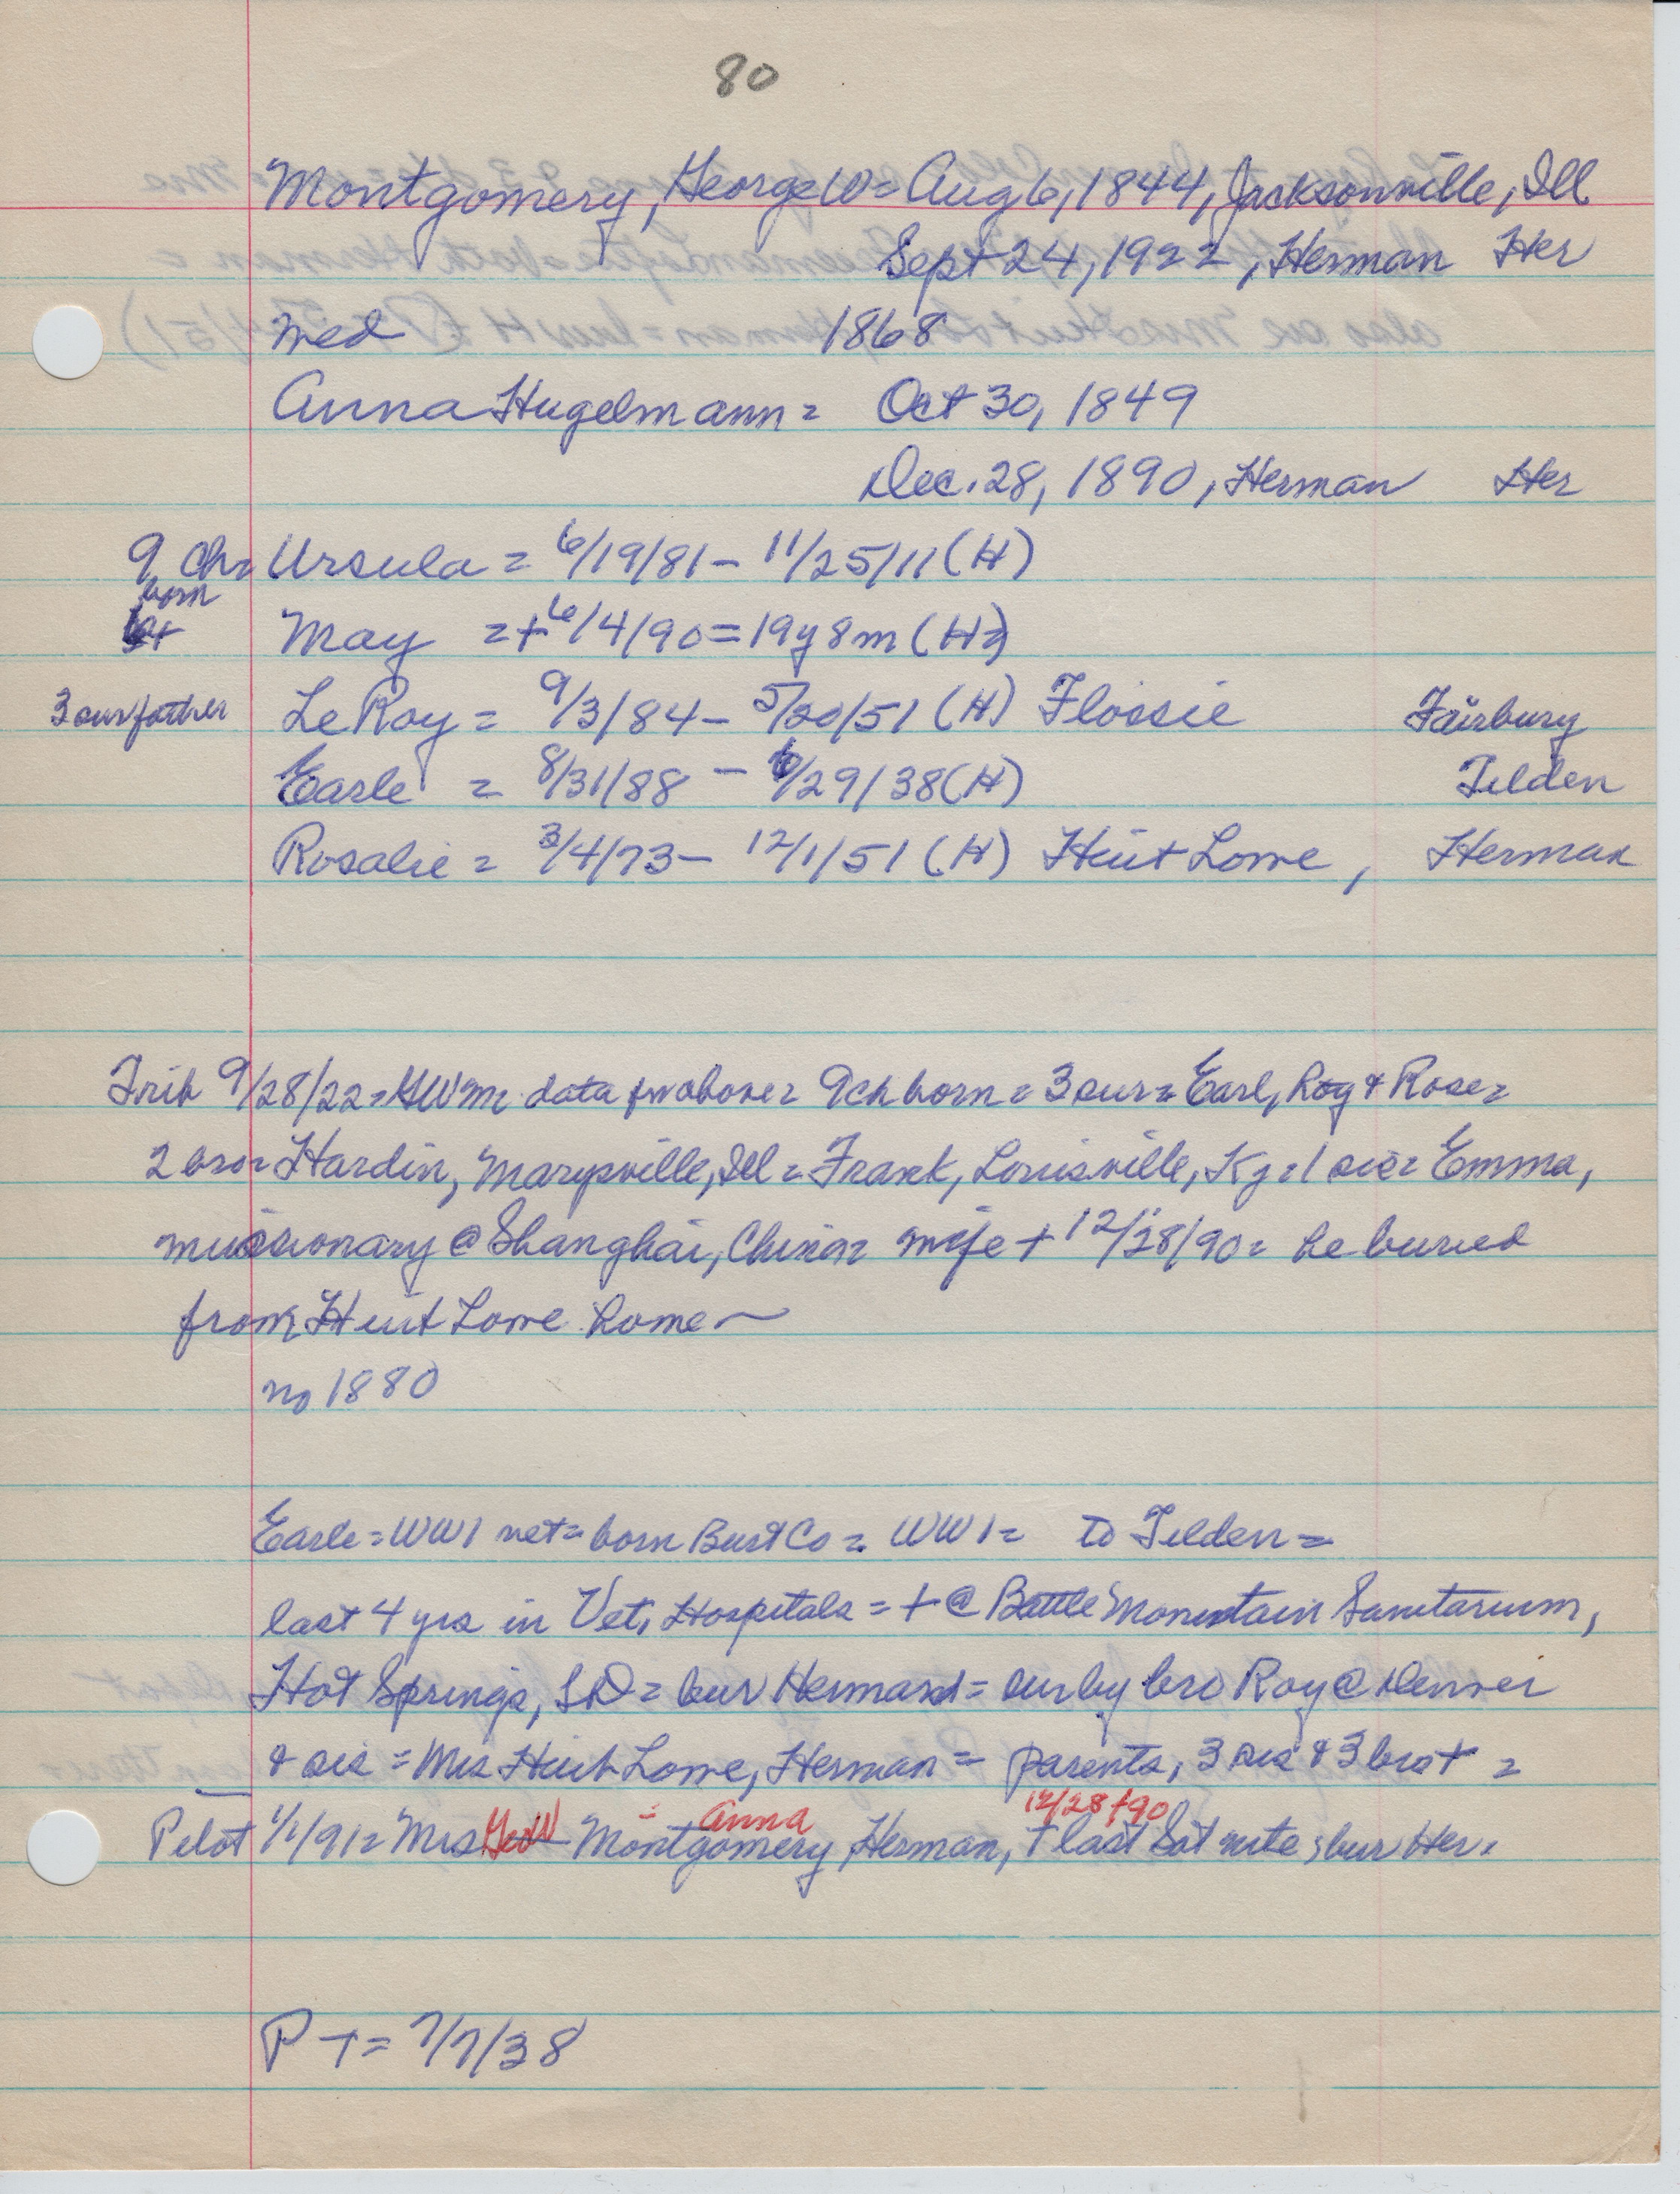 80
Montgomery, George W = Aug 6, 1844, Jacksonville, Ill
Sept 24, 1922, Herman Her
Med 1868
Anna Hugelmann = Oct 30, 1849
Dec. 28, 1890, Herman Her
9 Ch = Ursula = 6/19/81 - 11/25/11 (H)
born
May = + 6/4/90 = 19y 8m (H)
3 sur father LeRoy = 9/3/84 - 5/20/51 (H) Flossie Fairbury
Earle = 8/31/88 - 6/29/38 (H) Tilden
Rosalie = 3/4/73 - 12/1/51 (H) Huit Lowe, Herman
Trib 9/28/22 = GWM = data fr above = 9 ch born = 3 sur = Earl, Roy & Rose =
2 bro = Hardin, Marysville, Ill = Frank, Louisville, Ky = 1 sis = Emma,
missionary @ Shanghai, China = wife + 12/28/90 = he buried
from Huit Lowe home ~
no 1880
Earle = WW1 vet = born Burt Co = WW1 = to Tilden =
last 4 yrs in Vet. Hospitals = + @ Battle Mountain Sanitarium,
Hot Springs, SD = bur Herman = sur by bro Roy @ Denver
& sis = Mrs Huit Lowe, Herman = parents, 3 sis & 3 bro + =
= Anna 12/28/90
Pilot 1/1/91 = Mrs Geo W Montgomery, Herman, + last Sat nite ; bur Her.
P T = 7/7/38